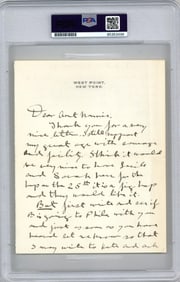 PSA
WEST POINT,
NEW YORK.
Dear Aunt Nannie:
Thank you for a very
nice letter. I still support
my great age with courage
and facility. I think it would
be very nice to have
and Sarah here for the
hop on the 25th it is a big hop
and they would like it.
But first write and see if
B is going to Phila with you
and just as soon as you have
heard let me know so that
I may write to and ask